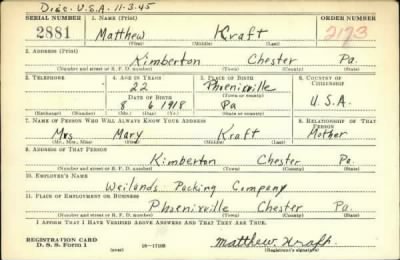 Disc. U.S.A. 11-3-45
SERIAL NUMBER 1. NAME (Print) ORDER NUMBER
2881 Matthew Kraft 2173
(First) (Middle) (Last)
2. ADDRESS (Print)
Kimberton Chester Pa.
(Number and street or R. F. D. number) (Town) (County) (State)
3. TELEPHONE 4. AGE IN YEARS 5. PLACE OF BIRTH 6. COUNTRY OF CITIZENSHIP
22 Phoenixville
DATE OF BIRTH (Town or county)
8 6 1918 Pa U.S.A.
(Exchange) (Number) (Mo.) (Day) (Yr.) (State or country)
7. NAME OF PERSON WHO WILL ALWAYS KNOW YOUR ADDRESS 8. RELATIONSHIP OF THAT PERSON
Mrs Mary Kraft Mother
(Mr., Mrs., Miss) (First) (Middle) (Last)
9. ADDRESS OF THAT PERSON
Kimberton Chester Pa.
(Number and street or R. F. D. number) (Town) (County) (State)
10. EMPLOYER'S NAME
Weilands Packing Company
11. PLACE OF EMPLOYMENT OR BUSINESS
Phoenixville Chester Pa.
(Number and street or R. F. D. number) (Town) (County) (State)
I AFFIRM THAT I HAVE VERIFIED ABOVE ANSWERS AND THAT THEY ARE TRUE.
REGISTRATION CARD
D. S. S. Form 1 (over) 16-17105 Matthew Kraft
(Registrant's signature)